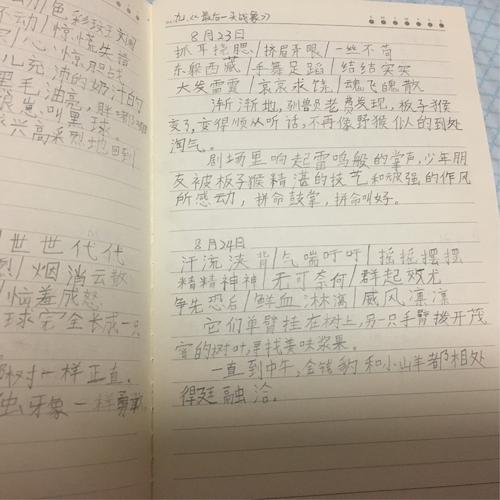 色彩
不动/惊慌失措
惊/胆战
沛的奶汁的
黑毛油亮,胖
崽叫黑球。
兴高采烈地回到
世世代代
烟消云散
恼羞成怒
球完全长成一只
树一样正直。
牙象一样勇敢
九.《最后一头战象》
8月23日
抓耳挠腮/挤眉弄眼/一丝不苟
东躲西藏/手舞足蹈/结结实实
大发雷霆/哀哀求饶/魂飞魄散
渐渐地,驯兽员老费发现,板子猴
变了,变得顺从听话,不再像野猴似的到处
淘气。
剧场里响起雷鸣般的掌声,少年朋
友被板子猴精湛的技艺和顽强的作风
所感动,拼命鼓掌,拼命叫好。
8月24日
汗流浃背/气喘吁吁/摇摇摆摆
精精神神/无可奈何/群起效尤
争先恐后/鲜血淋漓/威风凛凛
它们单臂挂在树上,另一只手臂拨开茂
密的树叶,寻找美味浆果。
一直到中午,金钱豹和小山羊都相处
得廷融洽。